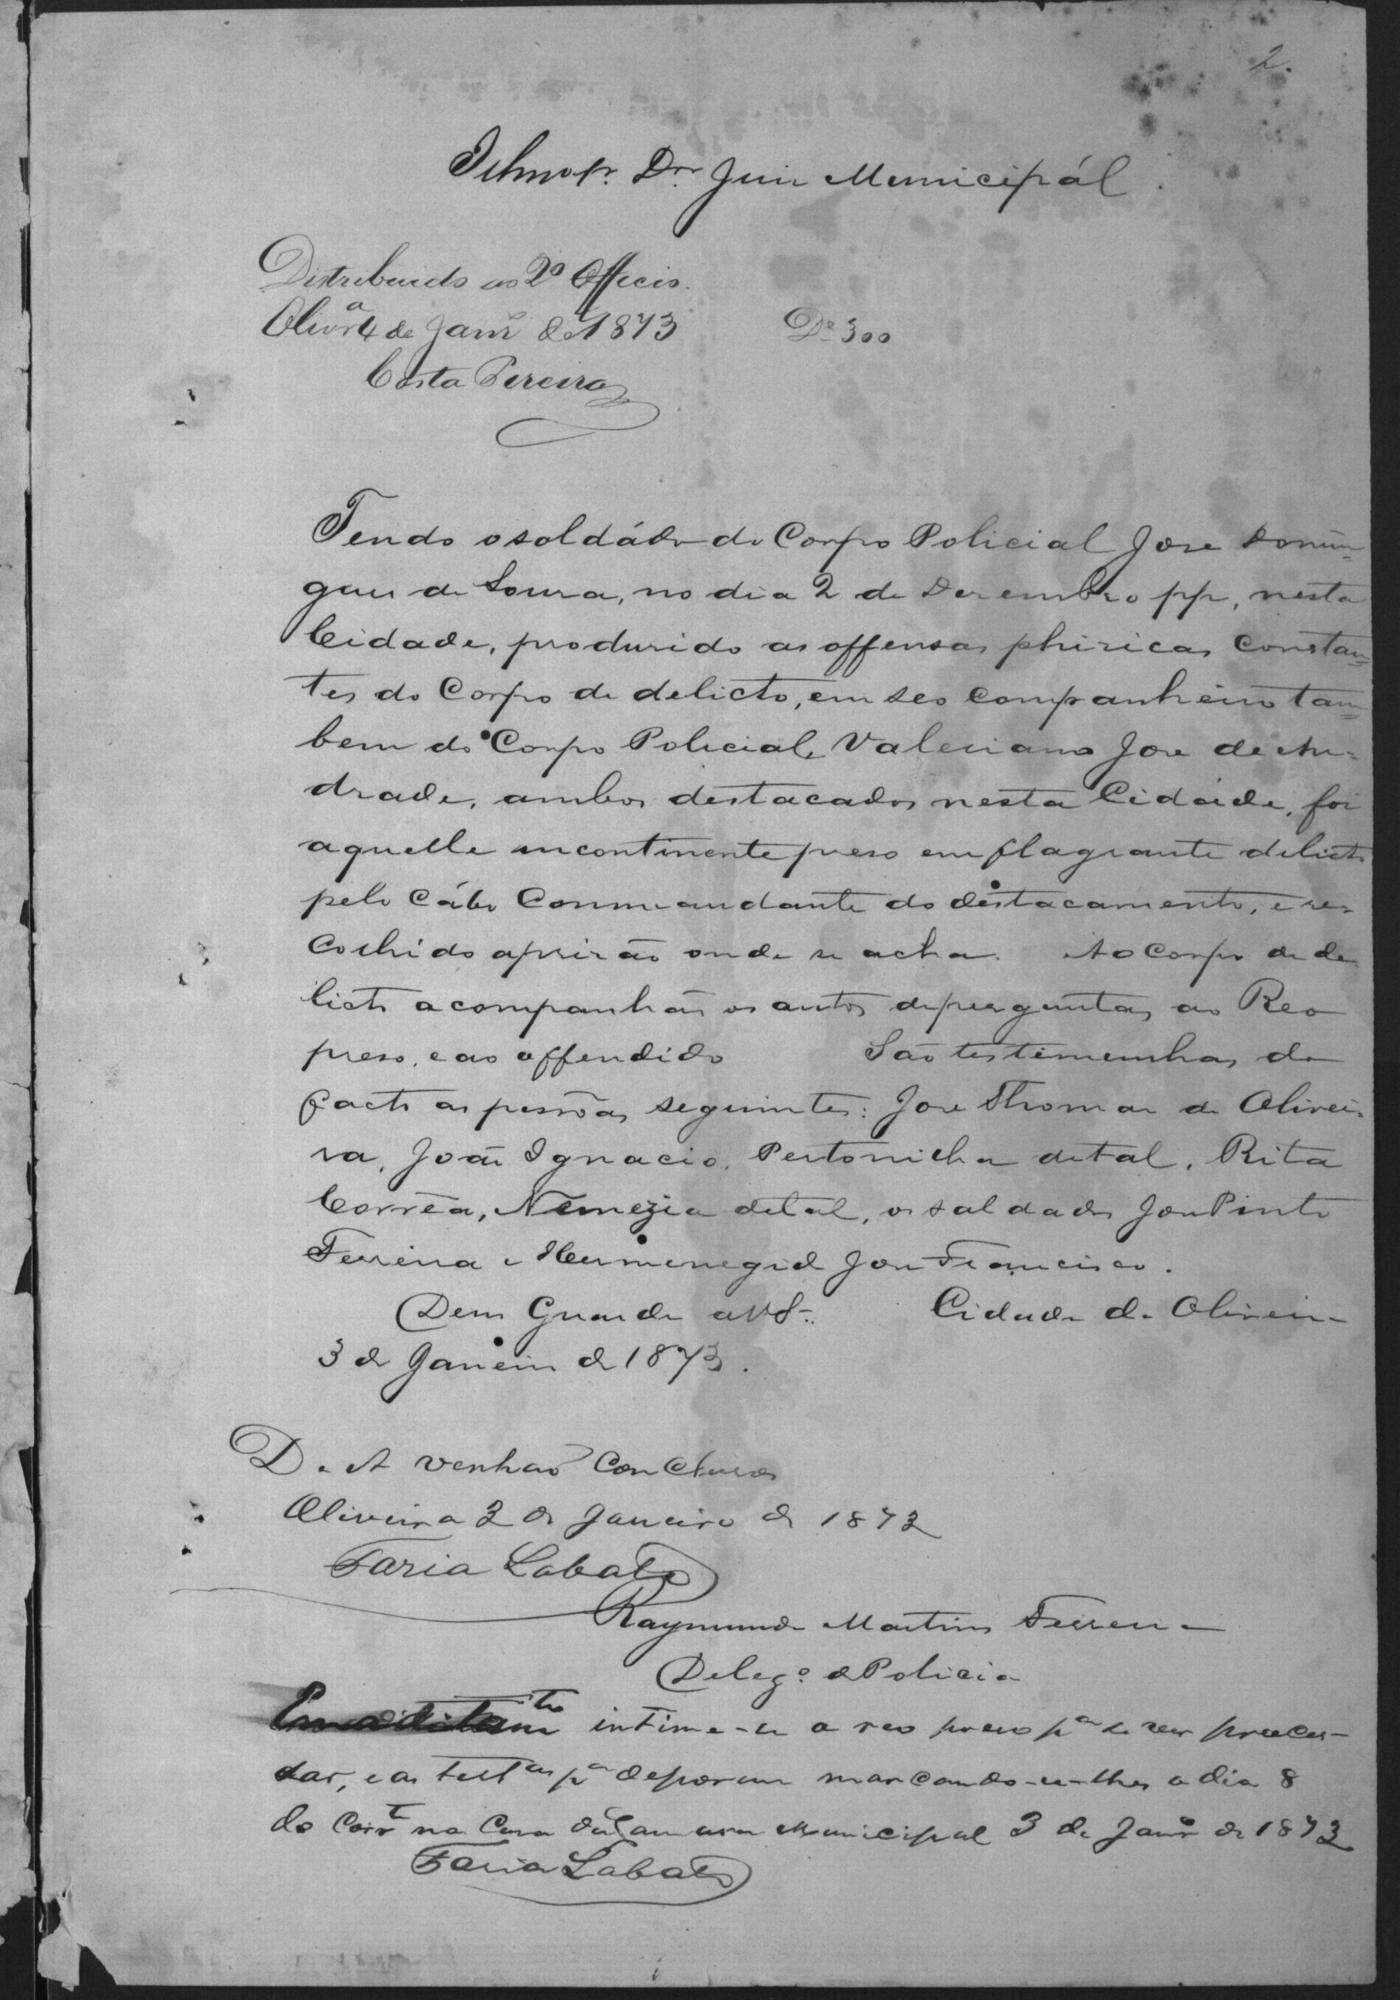 2.
Illmo Sr. Dor. Juiz Municipál
Distribuido ao 2º Officio.
Olivrª 4 de Janrº de 1873 Dº 300
Costa Pereira
Tendo o soldádo do Corpo Policial Jose Domin=
gues de Souza, no dia 2 de Dezembro pp, nesta
Cidade, produzido as offensas phizicas constan=
tes do Corpo de delicto, em seo companheiro tam=
bem do Corpo Policial, Valeriano Jose de An=
drade, ambos destacados nesta Cidáde, foi
aquelle incontinente preso em flagrante delicto
pelo Cábo Commandante do destacamento, e re=
colhido a prizão onde se acha. Ao Corpo de de
licto acompanhão os autos de perguntas ao Reo
preso, e ao offendido São testimunhas do
facto as pessôas seguintes: Jose Thomas de Olivei=
ra, João Ignacio, Pertonilha de tal, Rita
Corrêa, Nemezia de tal, os saldados Jose Pinto
Ferreira e Hermenegild Jose Francisco.
Deos Guarde a VS.. Cidade de Oliveira
3 de Janeiro de 1873.
D. A venhão Conclusos
Oliveira 3 de Janeiro de 1873
Faria Lobato
Raymundo Martins Ferreira
Delegº de Policia
Em aditamto intime-se o reo preso pª se ver proces-
sar, e as testas pª deporem marcando-se-lhes o dia 8
do Corrt na Casa da Camara Municipal 3 de Janrº de 1873
Faria Lobato